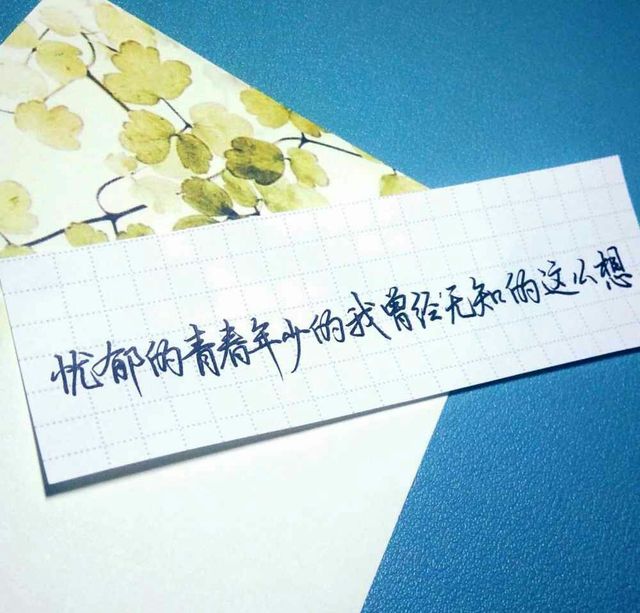 忧郁的青春年少的我曾经无知的这么想